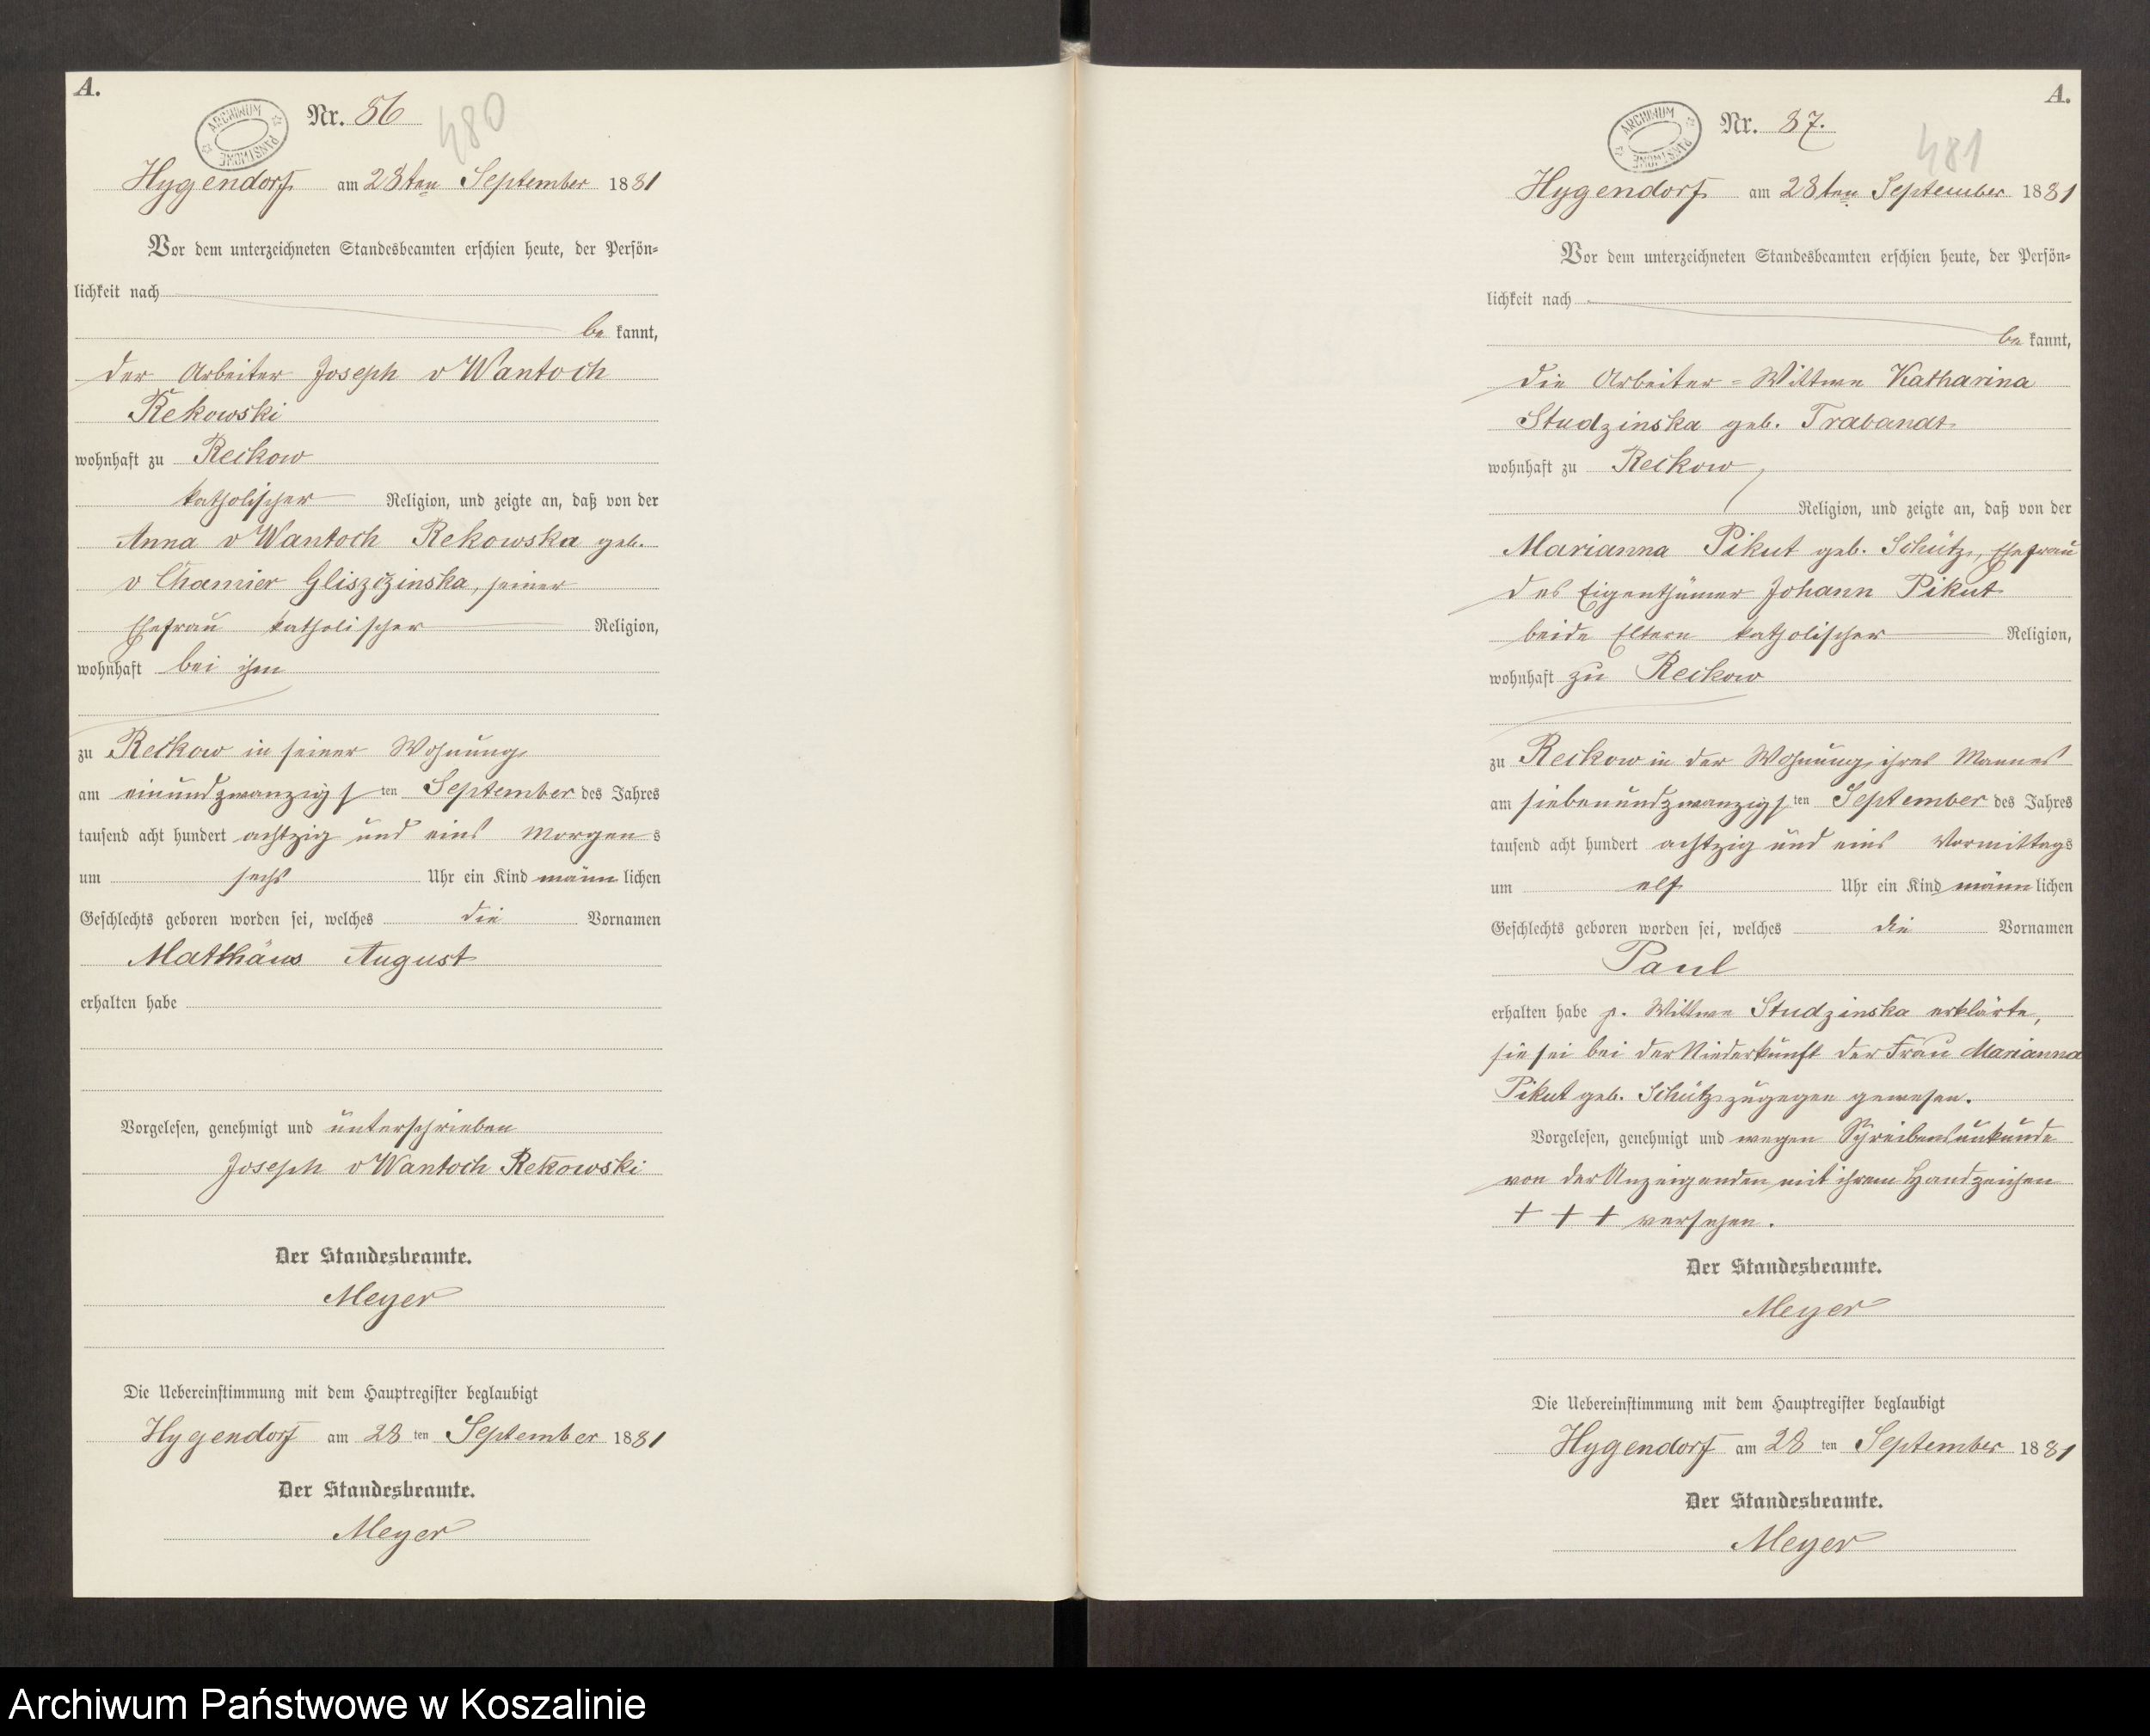 A.
ARCHIWUM PAŃSTWOWE
Nr. 86
480
Hygendorf am 28ten September 1881
Vor dem unterzeichneten Standesbeamten erschien heute, der Persön-
lichkeit nach
be kannt,
der Arbeiter Joseph v Wantoch
Rekowski
wohnhaft zu Reckow
katholischer Religion, und zeigte an, daß von der
Anna v Wantoch Rekowska geb.
v Chamier Gliszczinska, seiner
Ehefrau katholischer Religion,
wohnhaft bei ihm
zu Reckow in seiner Wohnung
am einundzwanzigsten September des Jahres
tausend acht hundert achtzig und eins Morgens
um sechs Uhr ein Kind männlichen
Geschlechts geboren worden sei, welches die Vornamen
Matthäus August
erhalten habe
Vorgelesen, genehmigt und unterschrieben
Joseph v Wantoch Rekowski
Der Standesbeamte.
Meyer
Die Uebereinstimmung mit dem Hauptregister beglaubigt
Hygendorf am 28 ten September 1881
Der Standesbeamte.
Meyer
A.
ARCHIWUM PAŃSTWOWE
Nr. 87.
481
Hygendorf am 28ten September 1881
Vor dem unterzeichneten Standesbeamten erschien heute, der Persön-
lichkeit nach
be kannt,
die Arbeiter=Wittwe Katharina
Studzinska geb. Trabandt
wohnhaft zu Reckow,
Religion, und zeigte an, daß von der
Marianna Pikut geb. Schütz, Ehefrau
des Eigenthümer Johann Pikut
beide Eltern katholischer Religion,
wohnhaft zu Reckow
zu Reckow in der Wohnung ihres Mannes
am siebenundzwanzigsten September des Jahres
tausend acht hundert achtzig und eins Vormittags
um elf Uhr ein Kind männlichen
Geschlechts geboren worden sei, welches die Vornamen
Paul
erhalten habe p. Wittwe Studzinska erklärte,
sie sei bei der Niederkunft der Frau Marianna
Pikut geb. Schütz zugegen gewesen.
Vorgelesen, genehmigt und wegen Schreibensunkunde
von der Anzeigenden mit ihrem Handzeichen
+ + + versehen.
Der Standesbeamte.
Meyer
Die Uebereinstimmung mit dem Hauptregister beglaubigt
Hygendorf am 28 ten September 1881
Der Standesbeamte.
Meyer
Archiwum Państwowe w Koszalinie